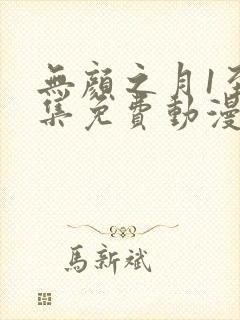 無顏之月1至
集免費動漫
馬新斌